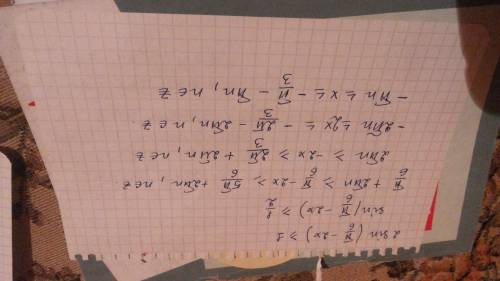 2 sin (π/6 - 2x) ≥ 1
sin (π/6 - 2x) ≥ 1/2
π/6 + 2πn ≥ π/6 - 2x ≥ 5π/6 + 2πn, n ∈ z.
2πn ≥ -2x ≥ 2π/3 + 2πn, n ∈ z
-2πn ≤ 2x ≤ - 2π/3 - 2πn, n ∈ z.
-πn ≤ x ≤ - π/3 - πn, n ∈ z